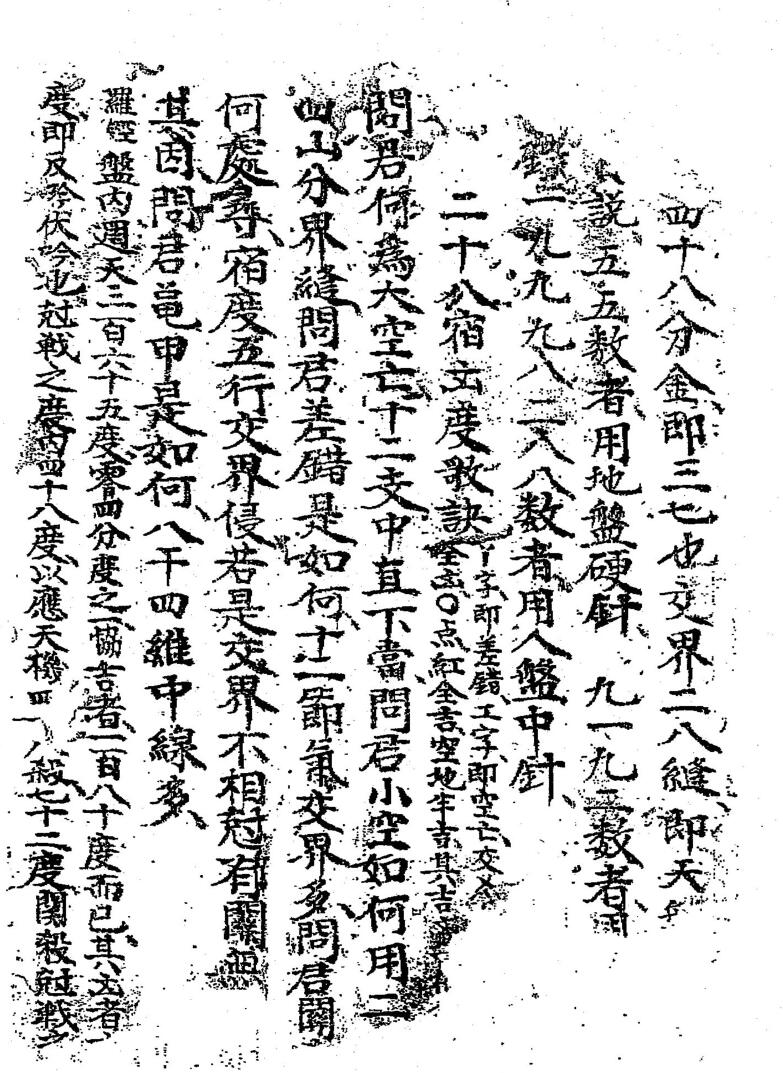 四十八分金即三七也交界二八縫即天
説五五数者用地盤硬針 九一九二数者用
一九九九八二八八数者用人盤中針
二十八宿立度歌訣 丫字即差錯工字即空亡交乂
全吉〇点紅全吉空地半吉其吉
問君何爲大空亡十二支中直下當問君小空如何用二
四山分界縫問君差錯是如何十二節氣交界多問君關
何處尋宿度五行交界侵若是交界不相尅有關
其因問君黽甲是如何八干四維中線多
羅經盤内週天三百六十五度零四分度之一惱吉者一百八十度而已其六文者
度即反吟伏吟也尅戰之度内四十八度以應天機四 八殺七十二度關殺尅戰之